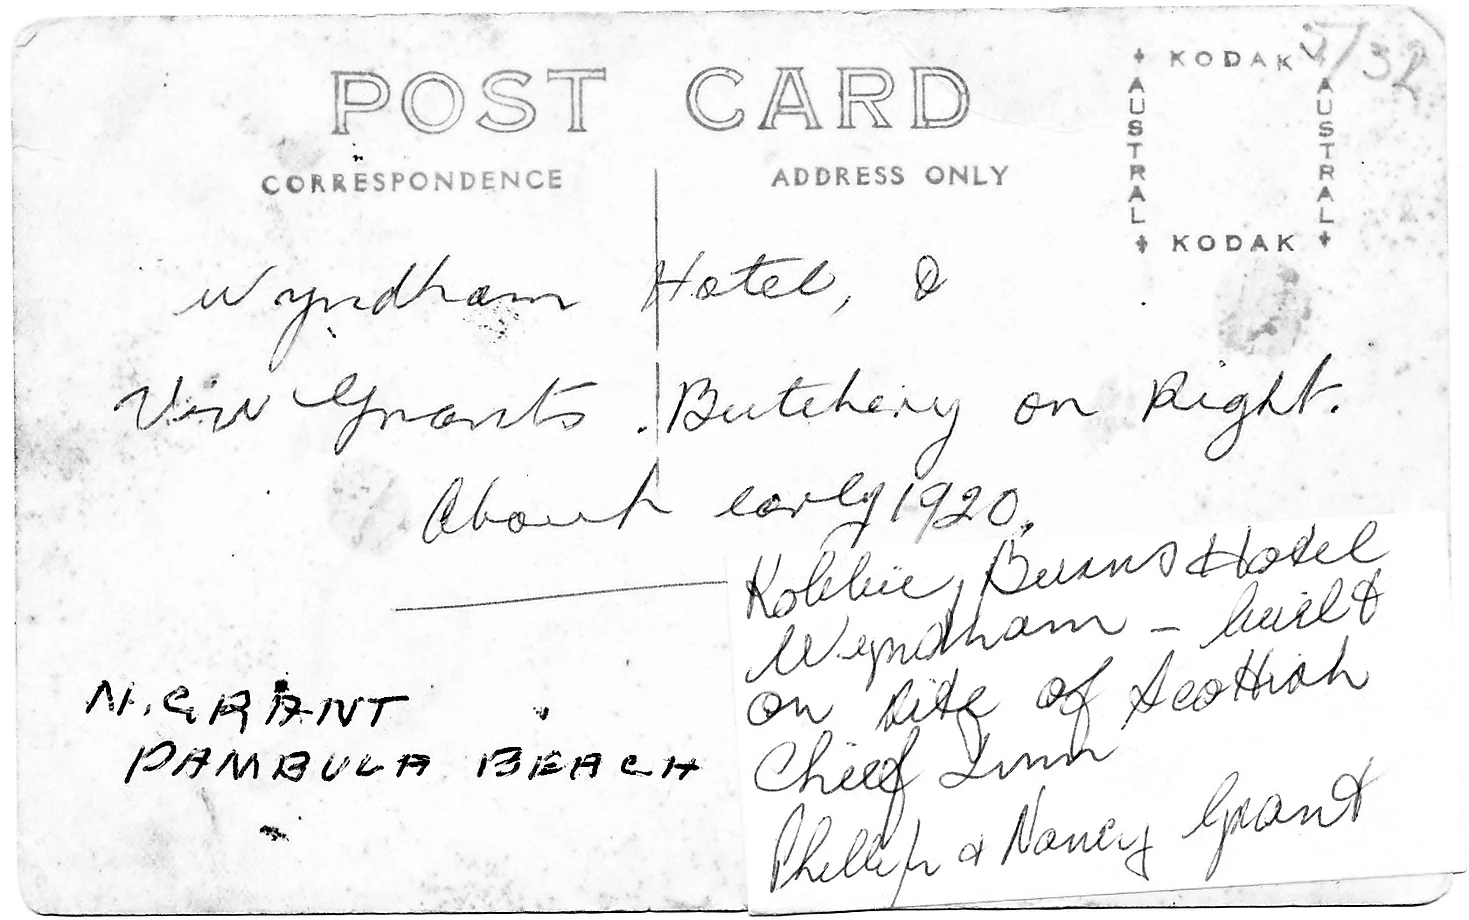 POST CARD
CORRESPONDENCE
ADDRESS ONLY
KODAK
AUSTRAL
AUSTRAL
KODAK
5/32
Wyndham Hotel, &
Vin Grants. Butchery on Right.
About early 1920.
Robbie Burns Hotel
Wyndham - built
on site of Scottish
Chief Inn
Phillip & Nancy Grant
N. GRANT
PAMBULA BEACH